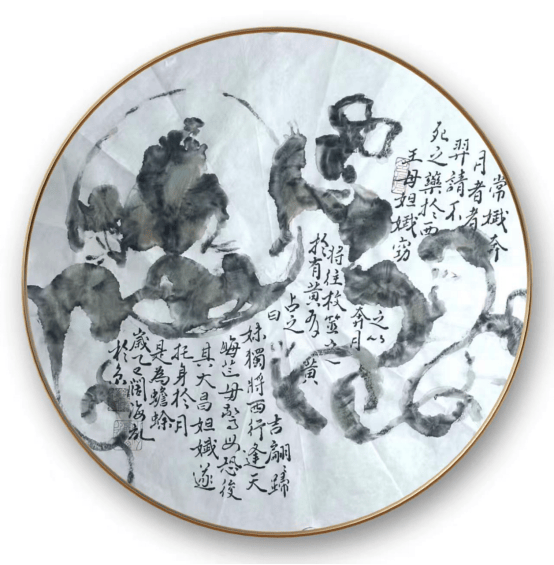 常娥奔
月者者
羿請不
死之藥於西
王母姮娥竊
之以
奔月
將往枚筮之
於有黃有
黃
占之
曰
吉翩歸
妹獨將西行逢天
晦芒毋驚毋恐後
其大昌姮娥遂
托身於月
是為蟾蜍
歲乙海亂
於